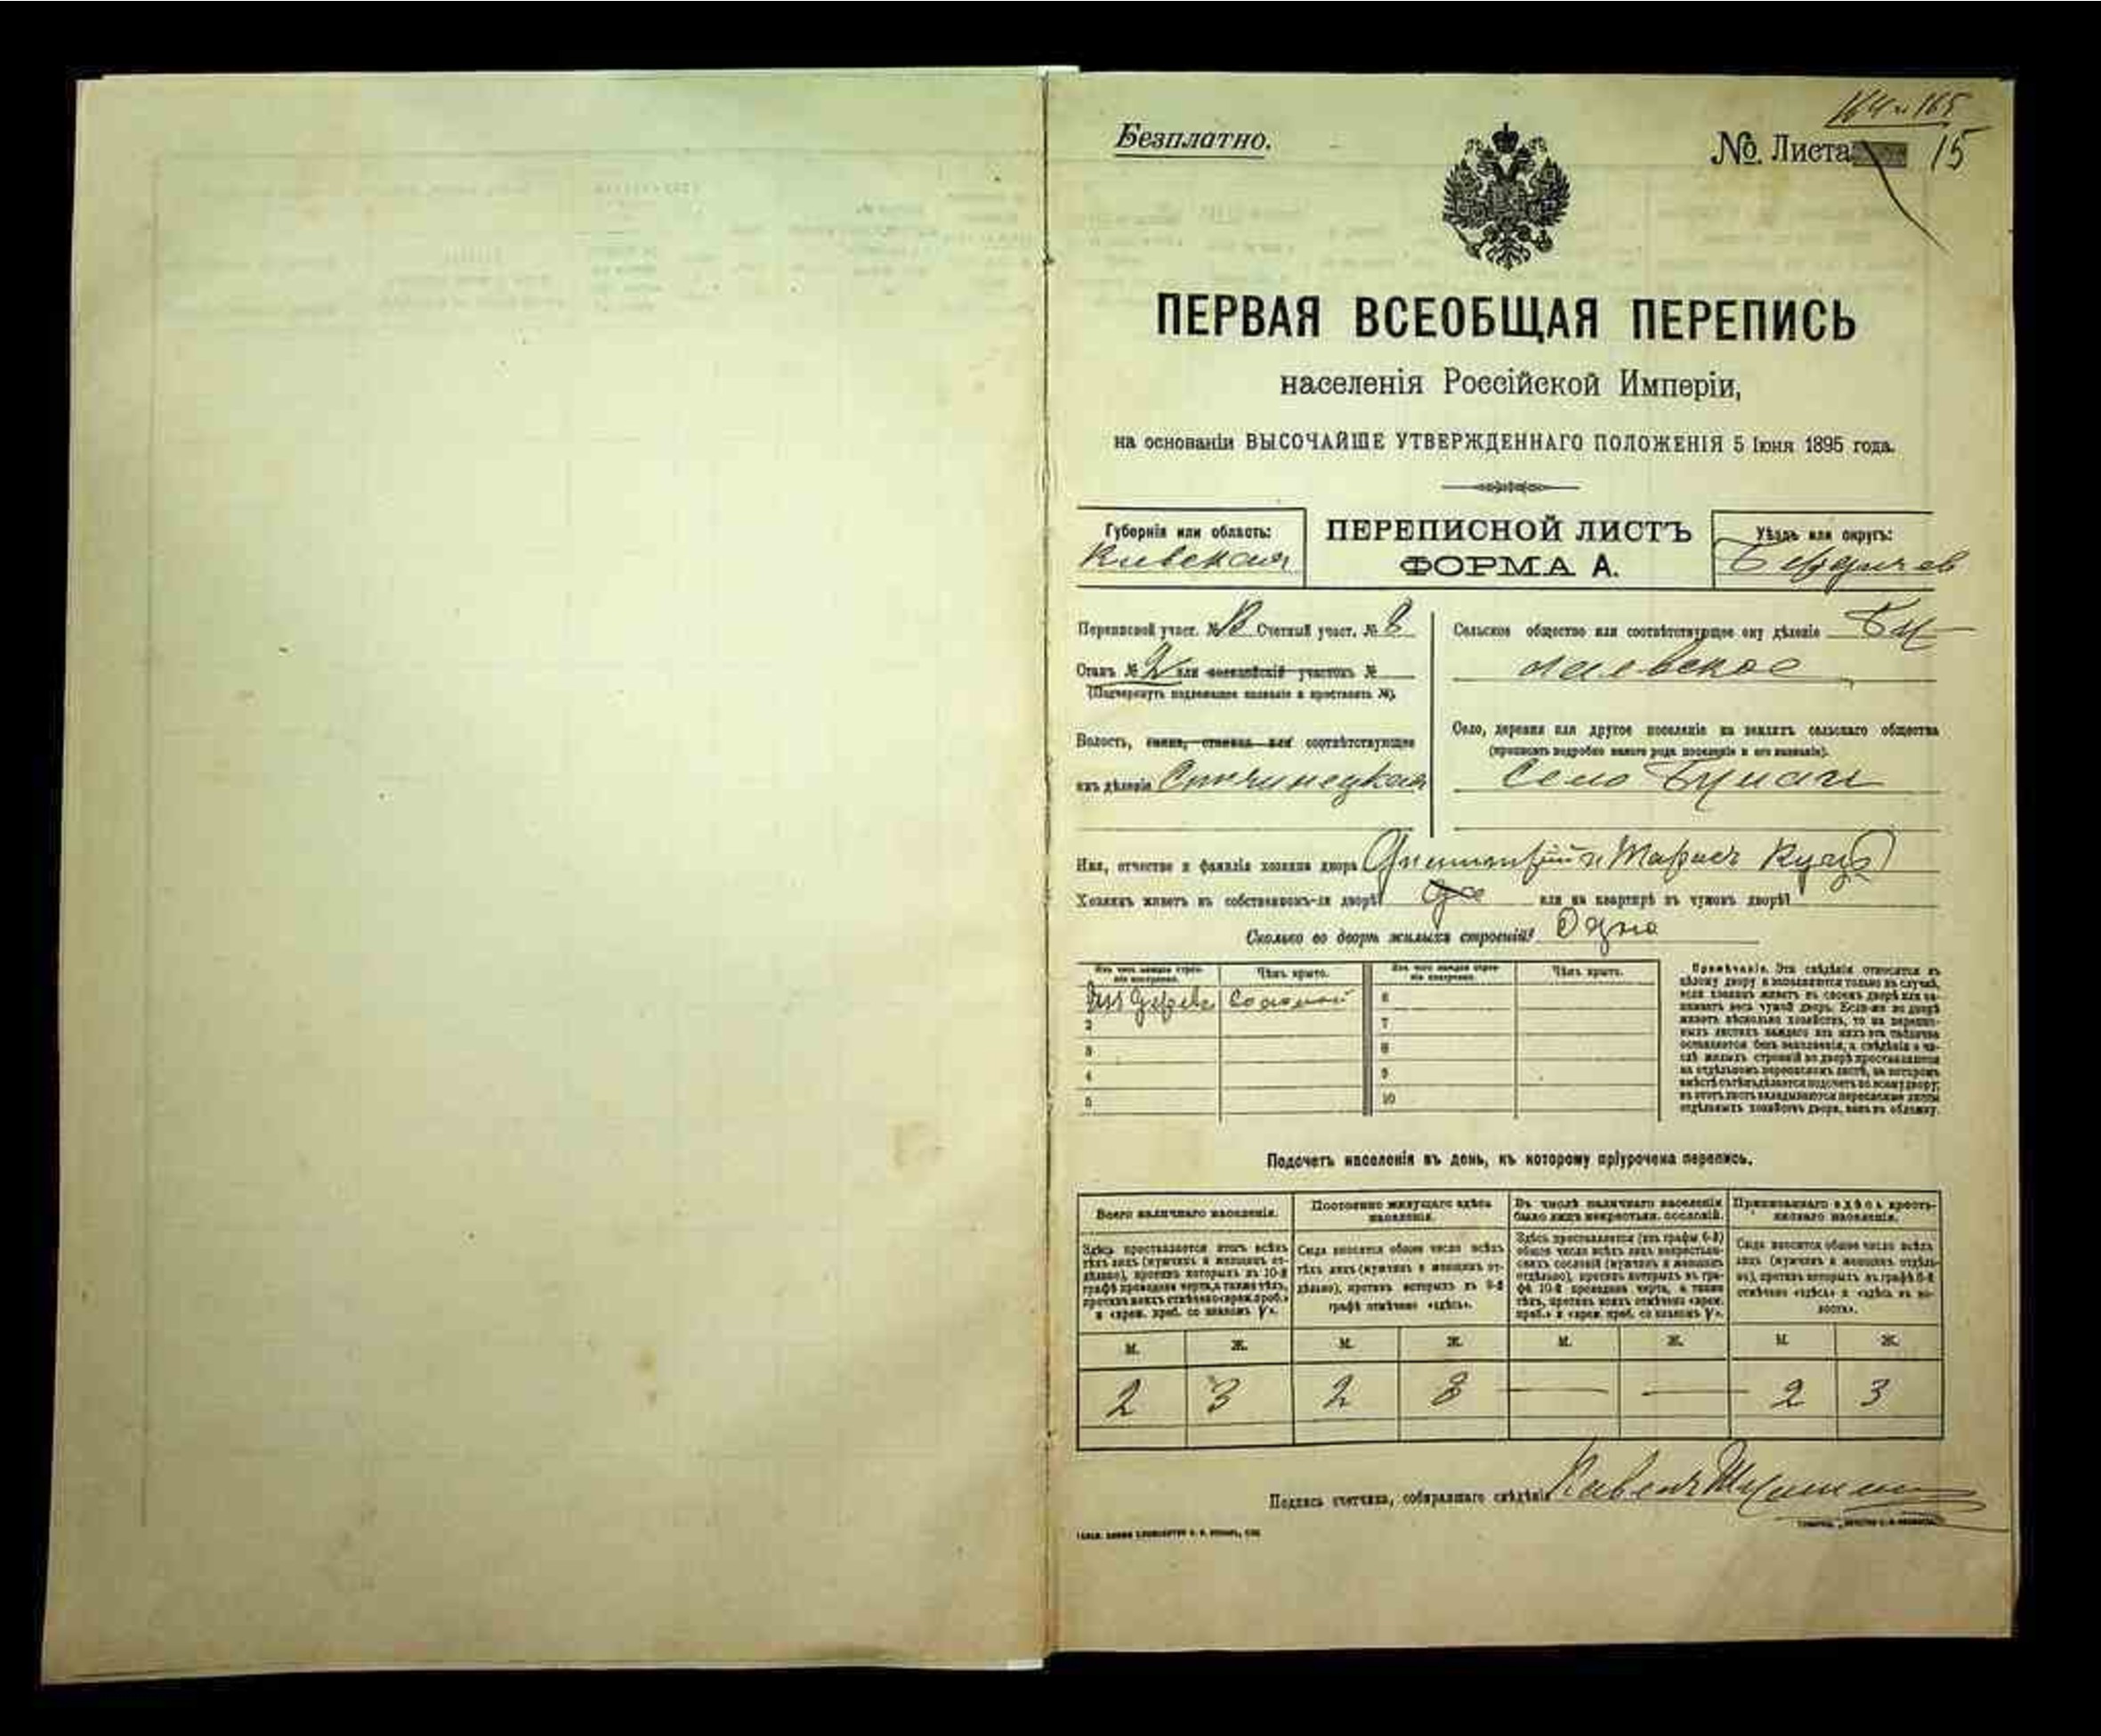 Безплатно.
164 и 165
№ Листа 15
ПЕРВАЯ ВСЕОБЩАЯ ПЕРЕПИСЬ
населенія Россійской Имперіи,
на основаніи ВЫСОЧАЙШЕ УТВЕРЖДЕННАГО ПОЛОЖЕНІЯ 5 Іюня 1895 года.
Губернія или область:
Киевская
ПЕРЕПИСНОЙ ЛИСТЪ
ФОРМА А.
Уѣздъ или округъ:
Бердичев
Переписной участ. № Счетный участ. № 8
Станъ № 2 или полицейскій участокъ №
(Подчеркнуть подлежащее названіе и проставить №).
Волость, гмина, станица или соотвѣтствующее
имъ дѣленіе
Сельское общество или соотвѣтствующее ему дѣленіе
Село, деревня или другое поселеніе на земляхъ сельскаго общества
(прописать подробно какого рода поселеніе и его названіе).
Село
Имя, отчество и фамилія хозяина двора Дмитрій и Тарасъ
Хозяинъ живетъ въ собственномъ-ли дворѣ? или на квартирѣ въ чужомъ дворѣ?
Сколько во дворѣ жилыхъ строеній? Одно
Изъ чего каждое строеніе построено.
Чѣмъ крыто.
Изъ чего каждое строеніе построено.
Чѣмъ крыто.
Изъ дерева Соломой 6
2 7
3 8
4 9
5 10
Примѣчаніе. Эти свѣдѣнія относятся къ
цѣлому двору и заполняются только въ случаѣ,
если хозяинъ живетъ въ своемъ дворѣ или за-
нимаетъ весь чужой дворъ. Если-же во дворѣ
живетъ нѣсколько хозяйствъ, то на перепис-
ныхъ листахъ каждаго изъ нихъ эта табличка
оставляется безъ заполненія, а свѣдѣнія о чи-
слѣ жилыхъ строеній во дворѣ проставляются
на отдѣльномъ переписномъ листѣ, на которомъ
вмѣстѣ съ тѣмъ дѣлается подсчетъ по всему двору;
въ этотъ листъ вкладываются переписные листы
отдѣльныхъ хозяйствъ двора, какъ въ обложку.
Подсчетъ населенія въ день, къ которому пріурочена перепись.
Всего наличнаго населенія.
Здѣсь проставляется итогъ всѣхъ
тѣхъ лицъ (мужчинъ и женщинъ от-
дѣльно), противъ которыхъ въ 10-й
графѣ проведена черта, а также тѣхъ,
противъ коихъ отмѣчено «врем. преб.»
и «врем. преб. со знакомъ V».
Постоянно живущаго здѣсь
населенія.
Сюда вносится общее число всѣхъ
тѣхъ лицъ (мужчинъ и женщинъ от-
дѣльно), противъ которыхъ въ 9-й
графѣ отмѣчено «здѣсь».
Въ числѣ наличнаго населенія
было лицъ некрестьян. сословій.
Здѣсь проставляется (изъ графы 6-й)
общее число всѣхъ лицъ некрестьян-
скихъ сословій (мужчинъ и женщинъ
отдѣльно), противъ которыхъ въ гра-
фѣ 10-й проведена черта, а также
тѣхъ, противъ коихъ отмѣчено «врем.
преб.» и «врем. преб. со знакомъ V».
Приписаннаго здѣсь кресть-
янскаго населенія.
Сюда вносится общее число всѣхъ
лицъ (мужчинъ и женщинъ отдѣль-
но), противъ которыхъ въ графѣ 8-й
отмѣчено «здѣсь» и «здѣсь въ во-
лости».
М. Ж. М. Ж. М. Ж. М. Ж.
2 3 2 3 — — 2 3
Подпись счетчика, собиравшаго свѣдѣнія